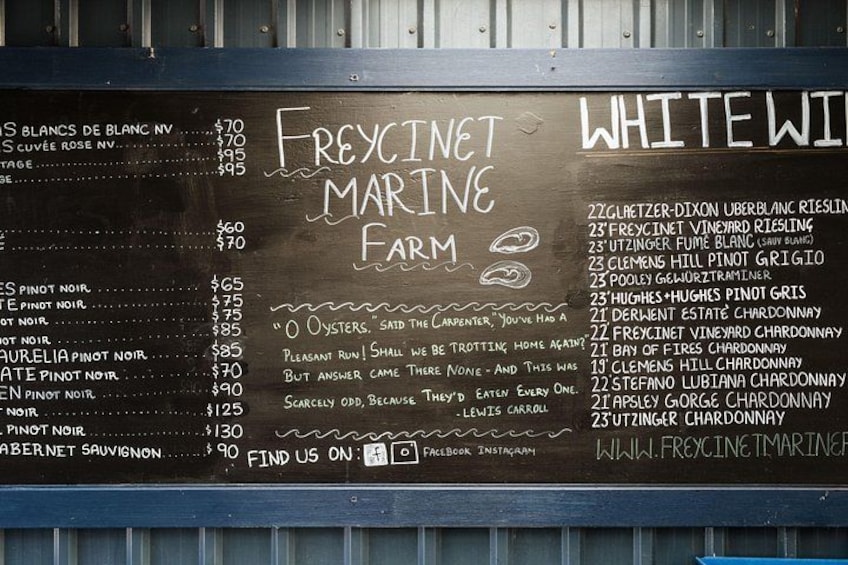 S BLANCS DE BLANC NV ..... $70
S CUVÉE ROSE NV ..... $70
TAGE ..... $95
GE ..... $95
$60
$70
ES PINOT NOIR ..... $65
TE PINOT NOIR ..... $75
NOT NOIR ..... $75
NOT NOIR ..... $85
AURELIA PINOT NOIR ..... $85
ATE PINOT NOIR ..... $70
EN PINOT NOIR ..... $90
T NOIR ..... $125
PINOT NOIR ..... $130
CABERNET SAUVIGNON ..... $90
FREYCINET
MARINE
FARM
"O OYSTERS," SAID THE CARPENTER, "YOU'VE HAD A
PLEASANT RUN! SHALL WE BE TROTTING HOME AGAIN?"
BUT ANSWER CAME THERE NONE - AND THIS WAS
SCARCELY ODD, BECAUSE THEY'D EATEN EVERY ONE.
- LEWIS CARROLL
FIND US ON: f FACEBOOK INSTAGRAM
WHITE WI
22' GLAETZER-DIXON UBERBLANC RIESLIN
23' FREYCINET VINEYARD RIESLING
23' UTZINGER FUMÉ BLANC (SAUV BLANC)
23' CLEMENS HILL PINOT GRIGIO
23' POOLEY GEWÜRZTRAMINER
23' HUGHES+HUGHES PINOT GRIS
21' DERWENT ESTATE CHARDONNAY
22' FREYCINET VINEYARD CHARDONNAY
21' BAY OF FIRES CHARDONNAY
19' CLEMENS HILL CHARDONNAY
22' STEFANO LUBIANA CHARDONNAY
21' APSLEY GORGE CHARDONNAY
23' UTZINGER CHARDONNAY
WWW.FREYCINETMARINEF